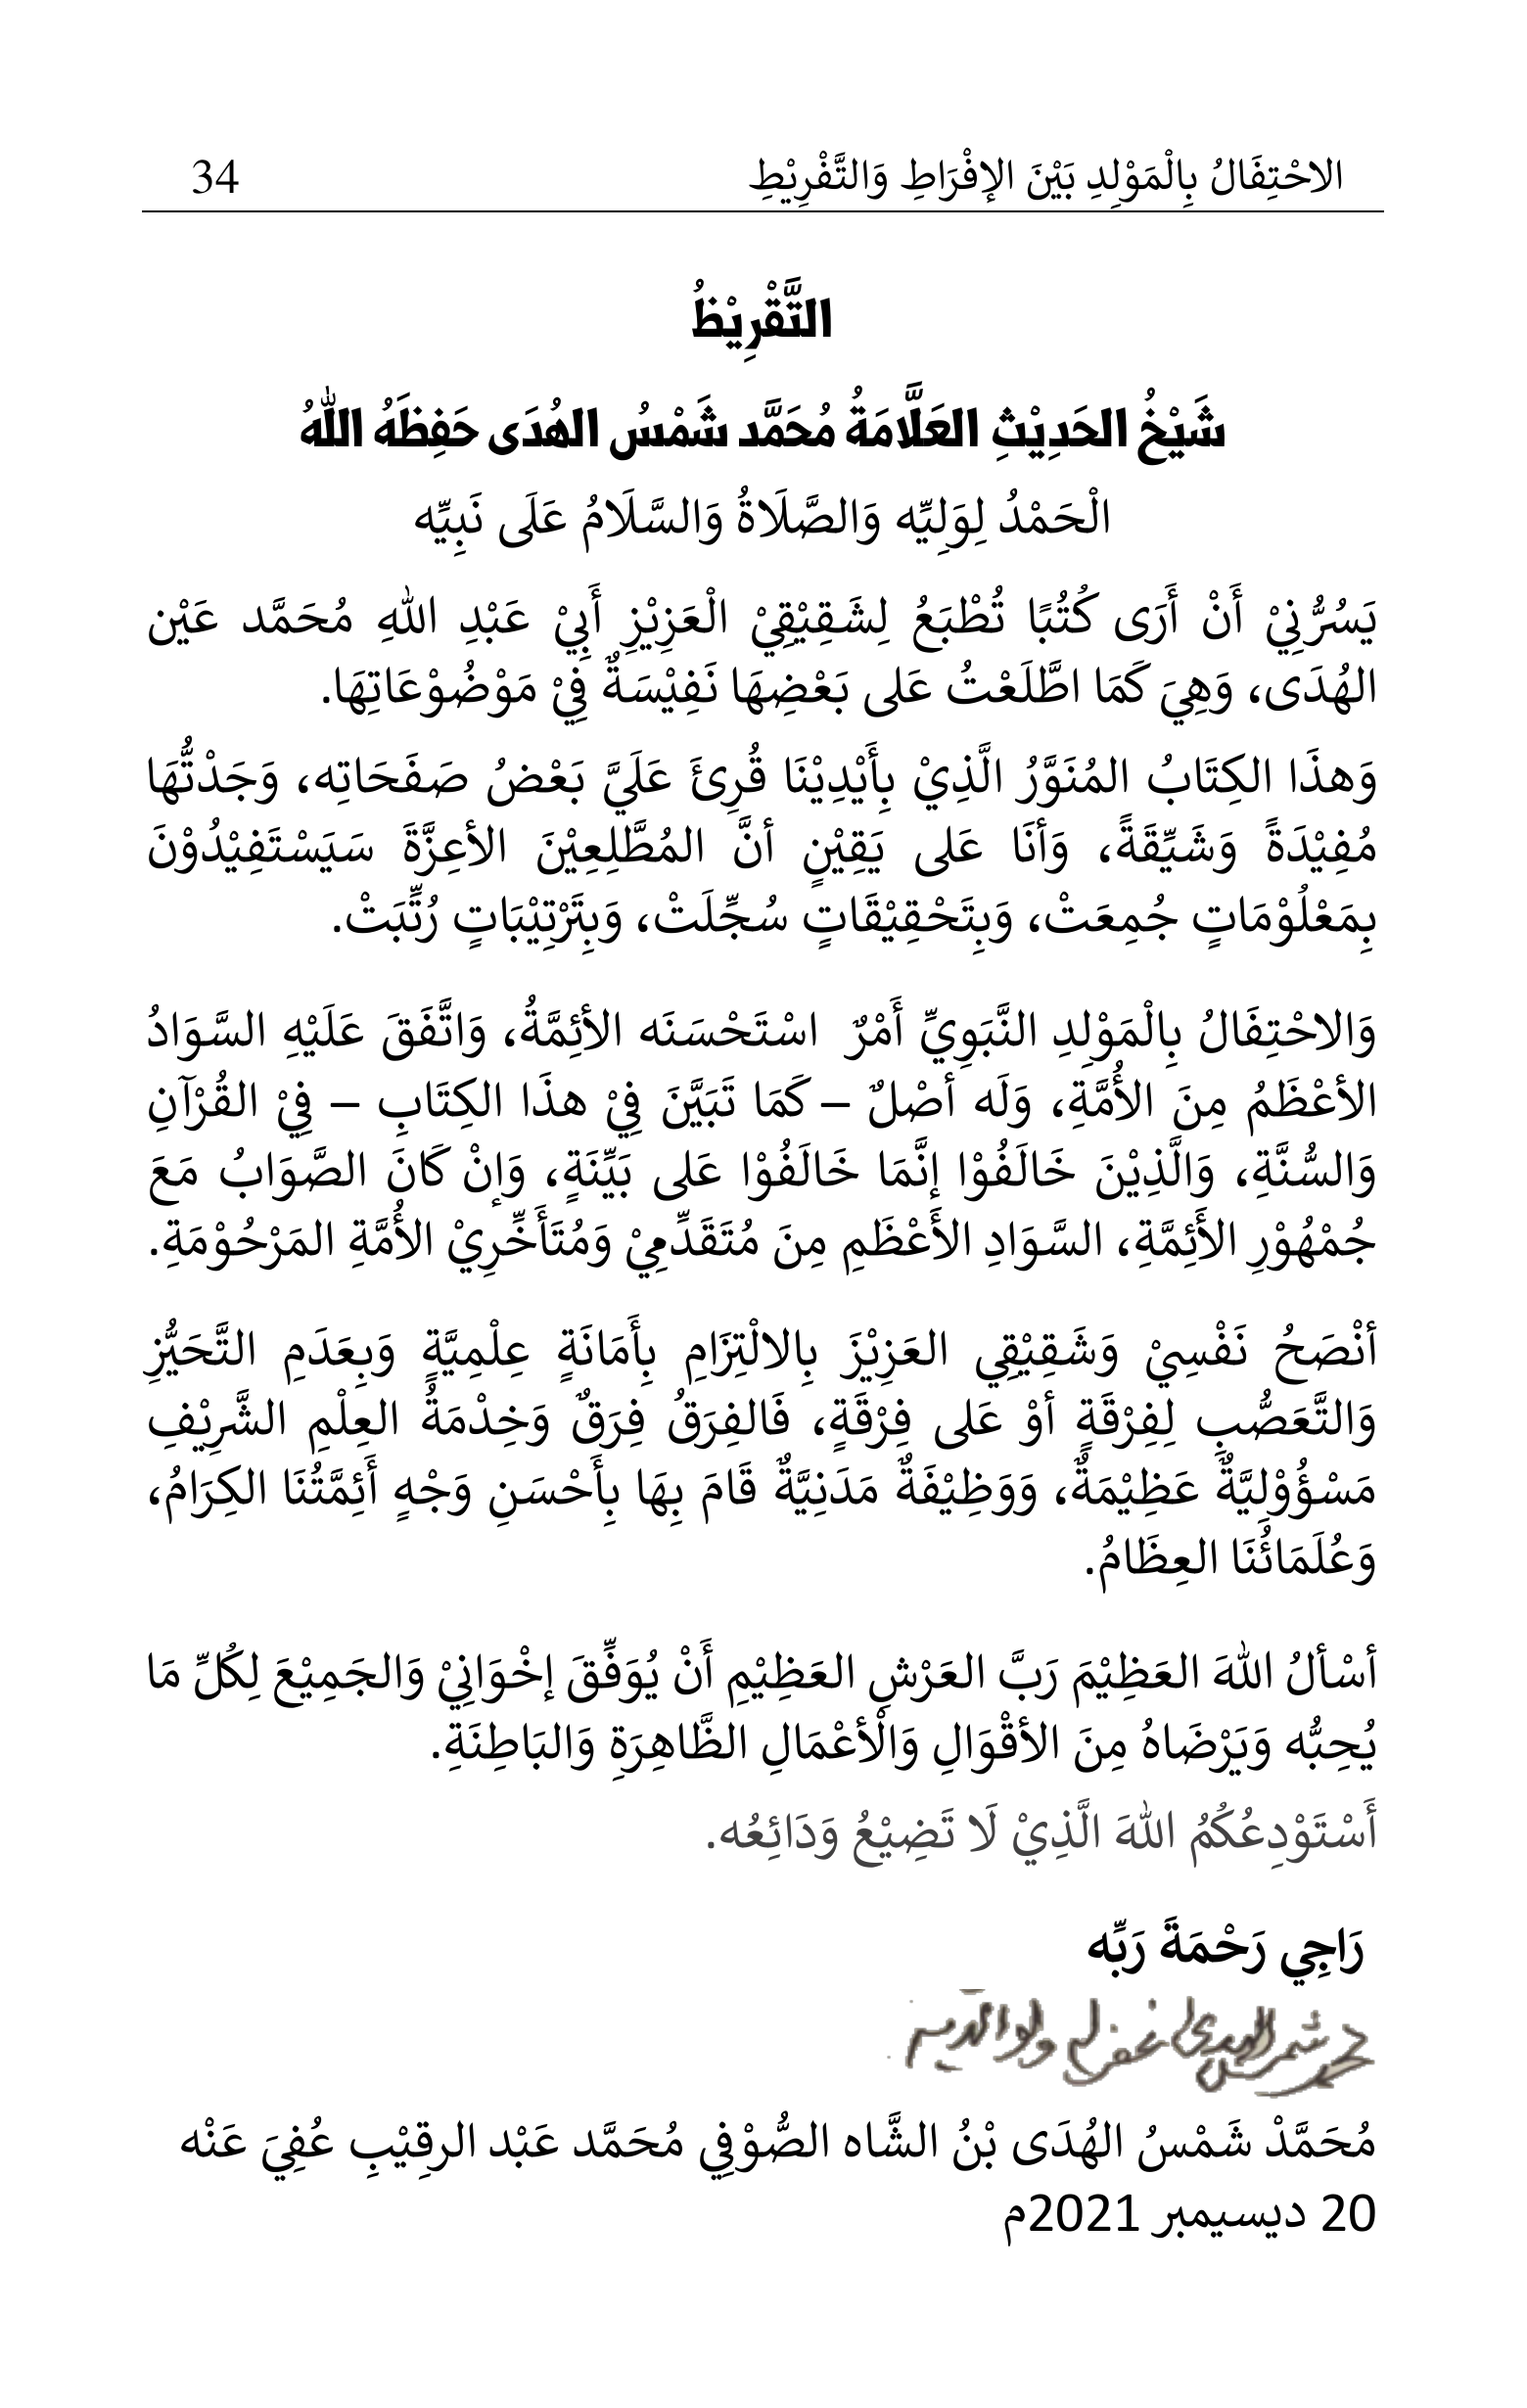 الاحْتِفَالُ بِالْمَوْلِدِ بَيْنَ الإفْرَاطِ وَالتَّفْرِيْطِ 34
التَّقْرِيْظُ
شَيْخُ الحَدِيْثِ العَلَّامَةُ مُحَمَّد شَمْسُ الهُدَى حَفِظَهُ اللهُ
الْحَمْدُ لِوَلِيِّه وَالصَّلَاةُ وَالسَّلَامُ عَلَى نَبِيِّه
يَسُرُّنِيْ أَنْ أَرَى كُتُبًا تُطْبَعُ لِشَقِيْقِيْ الْعَزِيْزِ أَبِيْ عَبْدِ اللهِ مُحَمَّد عَيْن
الهُدَى، وَهِيَ كَمَا اطَّلَعْتُ عَلى بَعْضِهَا نَفِيْسَةٌ فِيْ مَوْضُوْعَاتِهَا.
وَهذَا الكِتَابُ المُنَوَّرُ الَّذِيْ بِأَيْدِيْنَا قُرِئَ عَلَيَّ بَعْضُ صَفَحَاتِه، وَجَدْتُّهَا
مُفِيْدَةً وَشَيِّقَةً، وَأنَا عَلى يَقِيْنٍ أنَّ المُطَّلِعِيْنَ الأعِزَّةَ سَيَسْتَفِيْدُوْنَ
بِمَعْلُوْمَاتٍ جُمِعَتْ، وَبِتَحْقِيْقَاتٍ سُجِّلَتْ، وَبِتَرْتِيْبَاتٍ رُتِّبَتْ.
وَالاحْتِفَالُ بِالْمَوْلِدِ النَّبَوِيِّ أَمْرٌ اسْتَحْسَنَه الأئِمَّةُ، وَاتَّفَقَ عَلَيْهِ السَّوَادُ
الأعْظَمُ مِنَ الأُمَّةِ، وَلَه أصْلٌ – كَمَا تَبَيَّنَ فِيْ هذَا الكِتَابِ – فِيْ القُرْآنِ
وَالسُّنَّةِ، وَالَّذِيْنَ خَالَفُوْا إنَّمَا خَالَفُوْا عَلى بَيِّنَةٍ، وَإنْ كَانَ الصَّوَابُ مَعَ
جُمْهُوْرِ الأَئِمَّةِ، السَّوَادِ الأَعْظَمِ مِنَ مُتَقَدِّمِيْ وَمُتَأَخِّرِيْ الأُمَّةِ المَرْحُوْمَةِ.
أنْصَحُ نَفْسِيْ وَشَقِيْقِي العَزِيْزَ بِالالْتِزَامِ بِأَمَانَةٍ عِلْمِيَّةٍ وَبِعَدَمِ التَّحَيُّزِ
وَالتَّعَصُّبِ لِفِرْقَةٍ أوْ عَلى فِرْقَةٍ، فَالفِرَقُ فِرَقٌ وَخِدْمَةُ العِلْمِ الشَّرِيْفِ
مَسْؤُوْلِيَّةٌ عَظِيْمَةٌ، وَوَظِيْفَةٌ مَدَنِيَّةٌ قَامَ بِهَا بِأَحْسَنِ وَجْهٍ أَئِمَّتُنَا الكِرَامُ،
وَعُلَمَائُنَا العِظَامُ.
أسْألُ اللهَ العَظِيْمَ رَبَّ العَرْشِ العَظِيْمِ أَنْ يُوَفِّقَ إخْوَانِيْ وَالجَمِيْعَ لِكُلِّ مَا
يُحِبُّه وَيَرْضَاهُ مِنَ الأقْوَالِ وَالْأعْمَالِ الظَّاهِرَةِ وَالبَاطِنَةِ.
أَسْتَوْدِعُكُمُ اللهَ الَّذِيْ لَا تَضِيْعُ وَدَائِعُه.
رَاجِي رَحْمَةَ رَبِّه
مُحَمَّدْ شَمْسُ الهُدَى بْنُ الشَّاه الصُّوْفِي مُحَمَّد عَبْد الرقِيْبِ عُفِيَ عَنْه
20 ديسيمبر 2021م